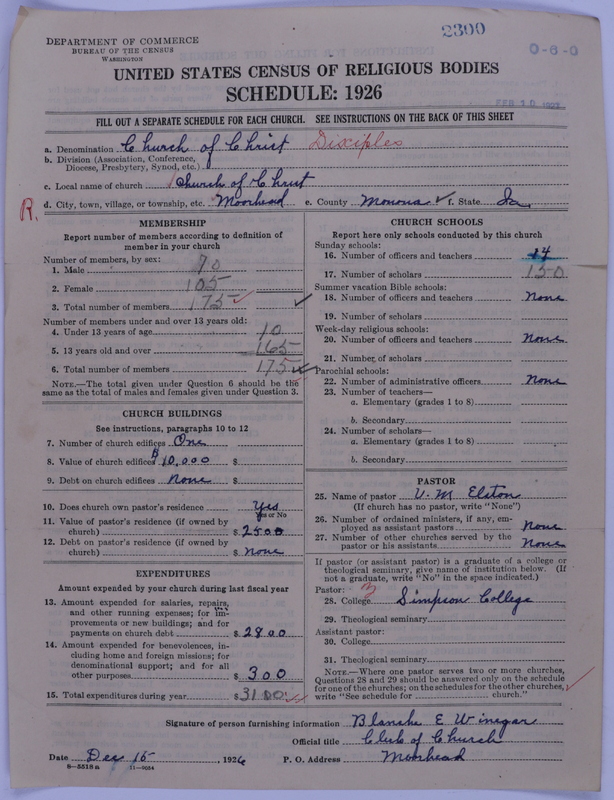 2300
DEPARTMENT OF COMMERCE
BUREAU OF THE CENSUS
WASHINGTON
0-6-0
UNITED STATES CENSUS OF RELIGIOUS BODIES
SCHEDULE: 1926
FILL OUT A SEPARATE SCHEDULE FOR EACH CHURCH. SEE INSTRUCTIONS ON THE BACK OF THIS SHEET
a. Denomination Church of Christ Disciples
b. Division (Association, Conference, Diocese, Presbytery, Synod, etc.)
c. Local name of church Church of Christ
R. d. City, town, village, or township, etc. Moorhead e. County Monona ✓ f. State Ia.
MEMBERSHIP
Report number of members according to definition of
member in your church
Number of members, by sex:
1. Male 70
2. Female 105
3. Total number of members 175 ✓ ✓
Number of members under and over 13 years old:
4. Under 13 years of age 10
5. 13 years old and over 165
6. Total number of members 175 ✓
NOTE.—The total given under Question 6 should be the
same as the total of males and females given under Question 3.
CHURCH BUILDINGS
See instructions, paragraphs 10 to 12
7. Number of church edifices One
8. Value of church edifices $10,000 $
9. Debt on church edifices None $
10. Does church own pastor's residence Yes
Yes or No
11. Value of pastor's residence (if owned by
church) $ 2500
12. Debt on pastor's residence (if owned by
church) $ None
EXPENDITURES
Amount expended by your church during last fiscal year
13. Amount expended for salaries, repairs,
and other running expenses; for im-
provements or new buildings; and for
payments on church debt $ 2800
14. Amount expended for benevolences, in-
cluding home and foreign missions; for
denominational support; and for all
other purposes $ 300
15. Total expenditures during year $ 3100
CHURCH SCHOOLS
Report here only schools conducted by this church
Sunday schools:
16. Number of officers and teachers 14
17. Number of scholars 150
Summer vacation Bible schools:
18. Number of officers and teachers None
19. Number of scholars
Week-day religious schools:
20. Number of officers and teachers None
21. Number of scholars
Parochial schools:
22. Number of administrative officers None
23. Number of teachers—
a. Elementary (grades 1 to 8)
b. Secondary
24. Number of scholars—
a. Elementary (grades 1 to 8)
b. Secondary
PASTOR
25. Name of pastor V. M. Elston
(If church has no pastor, write "None")
26. Number of ordained ministers, if any, em-
ployed as assistant pastors None
27. Number of other churches served by the
pastor or his assistants None
If pastor (or assistant pastor) is a graduate of a college or
theological seminary, give name of institution below. (If
not a graduate, write "No" in the space indicated.)
Pastor:
28. College Simpson College
29. Theological seminary
Assistant pastor:
30. College
31. Theological seminary
NOTE.—Where one pastor serves two or more churches,
Questions 28 and 29 should be answered only on the schedule
for one of the churches; on the schedules for the other churches,
write "See schedule for church."
Signature of person furnishing information Blanche E Winegar
Official title Clerk of Church
Date Dec 15, 1926 P. O. Address Moorhead
8—5518a 11—9034